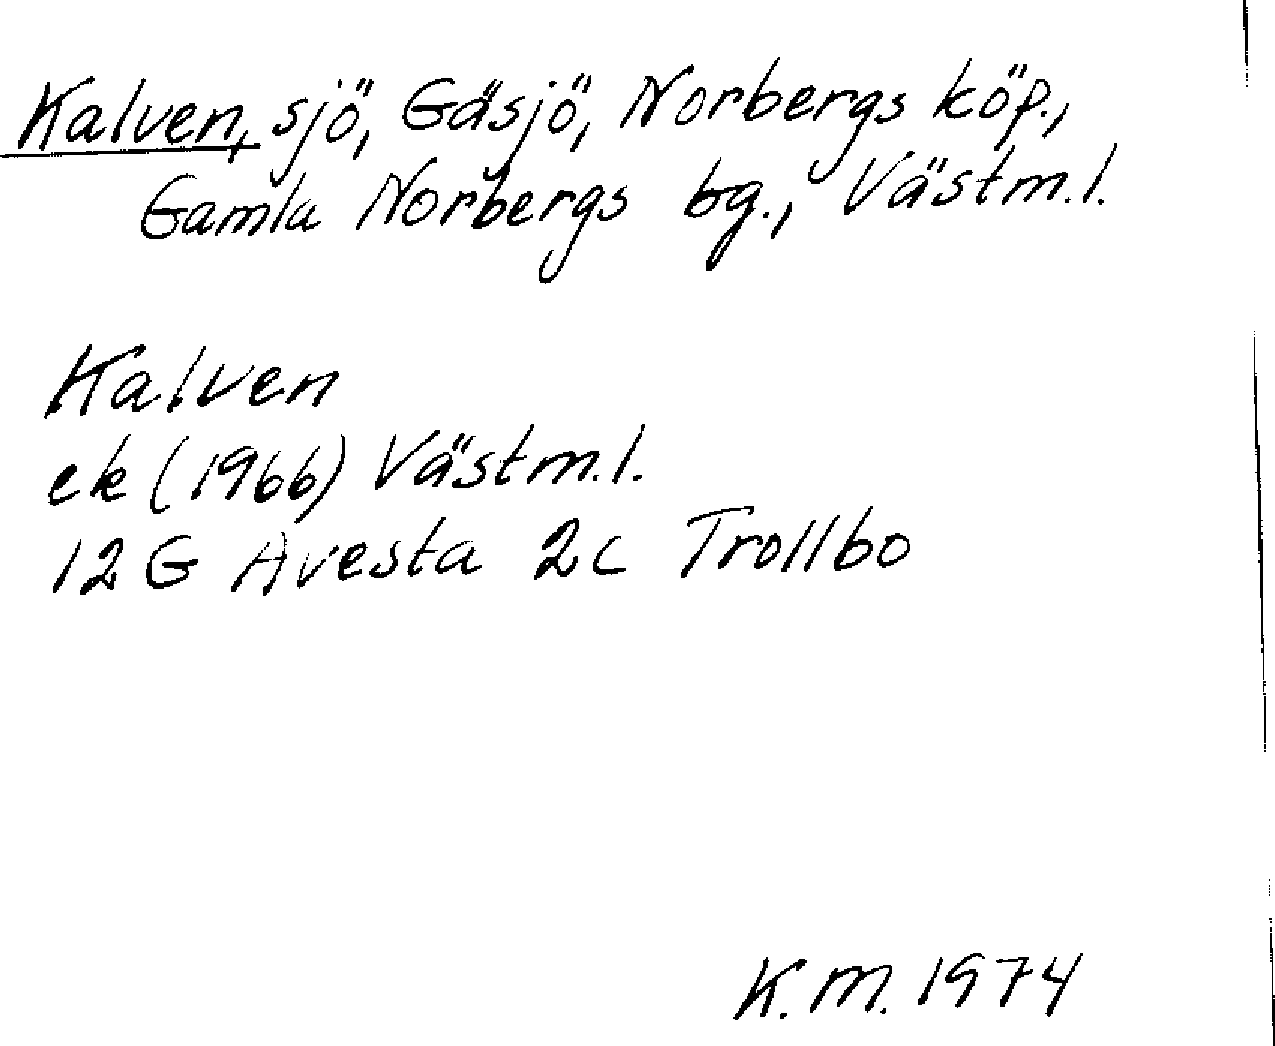 Kalven, sjö, Gäsjö, Norbergs köp.,
Gamla Norbergs bg., Västm.l.
Kalven
ek (1966) Västm.l.
12G Avesta 2c Trollbo
K.M. 1974